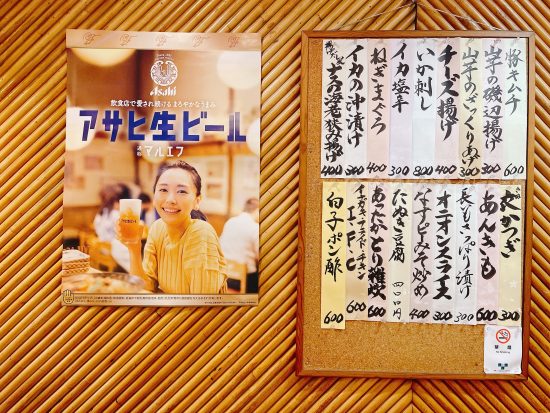 Asahi
飲食店で愛され続けるまろやかなうまみ
アサヒ生ビール
通称 マルエフ
豚キムチ 600
山芋の磯辺揚げ 300
山芋のざっくりあげ 300
チーズ揚げ 400
いか刺し 800
イカ塩辛 300
ねぎまぐろ 400
イカの沖漬け 300
400
皮かつぎ 300
あんきも 600
長もさっぱり漬け 300
オニオンスライス 300
なすとみそ炒め 400
たぬき豆腐 四〇〇円
あったかとり雑炊 600
600
白子ポン酢 600
禁煙